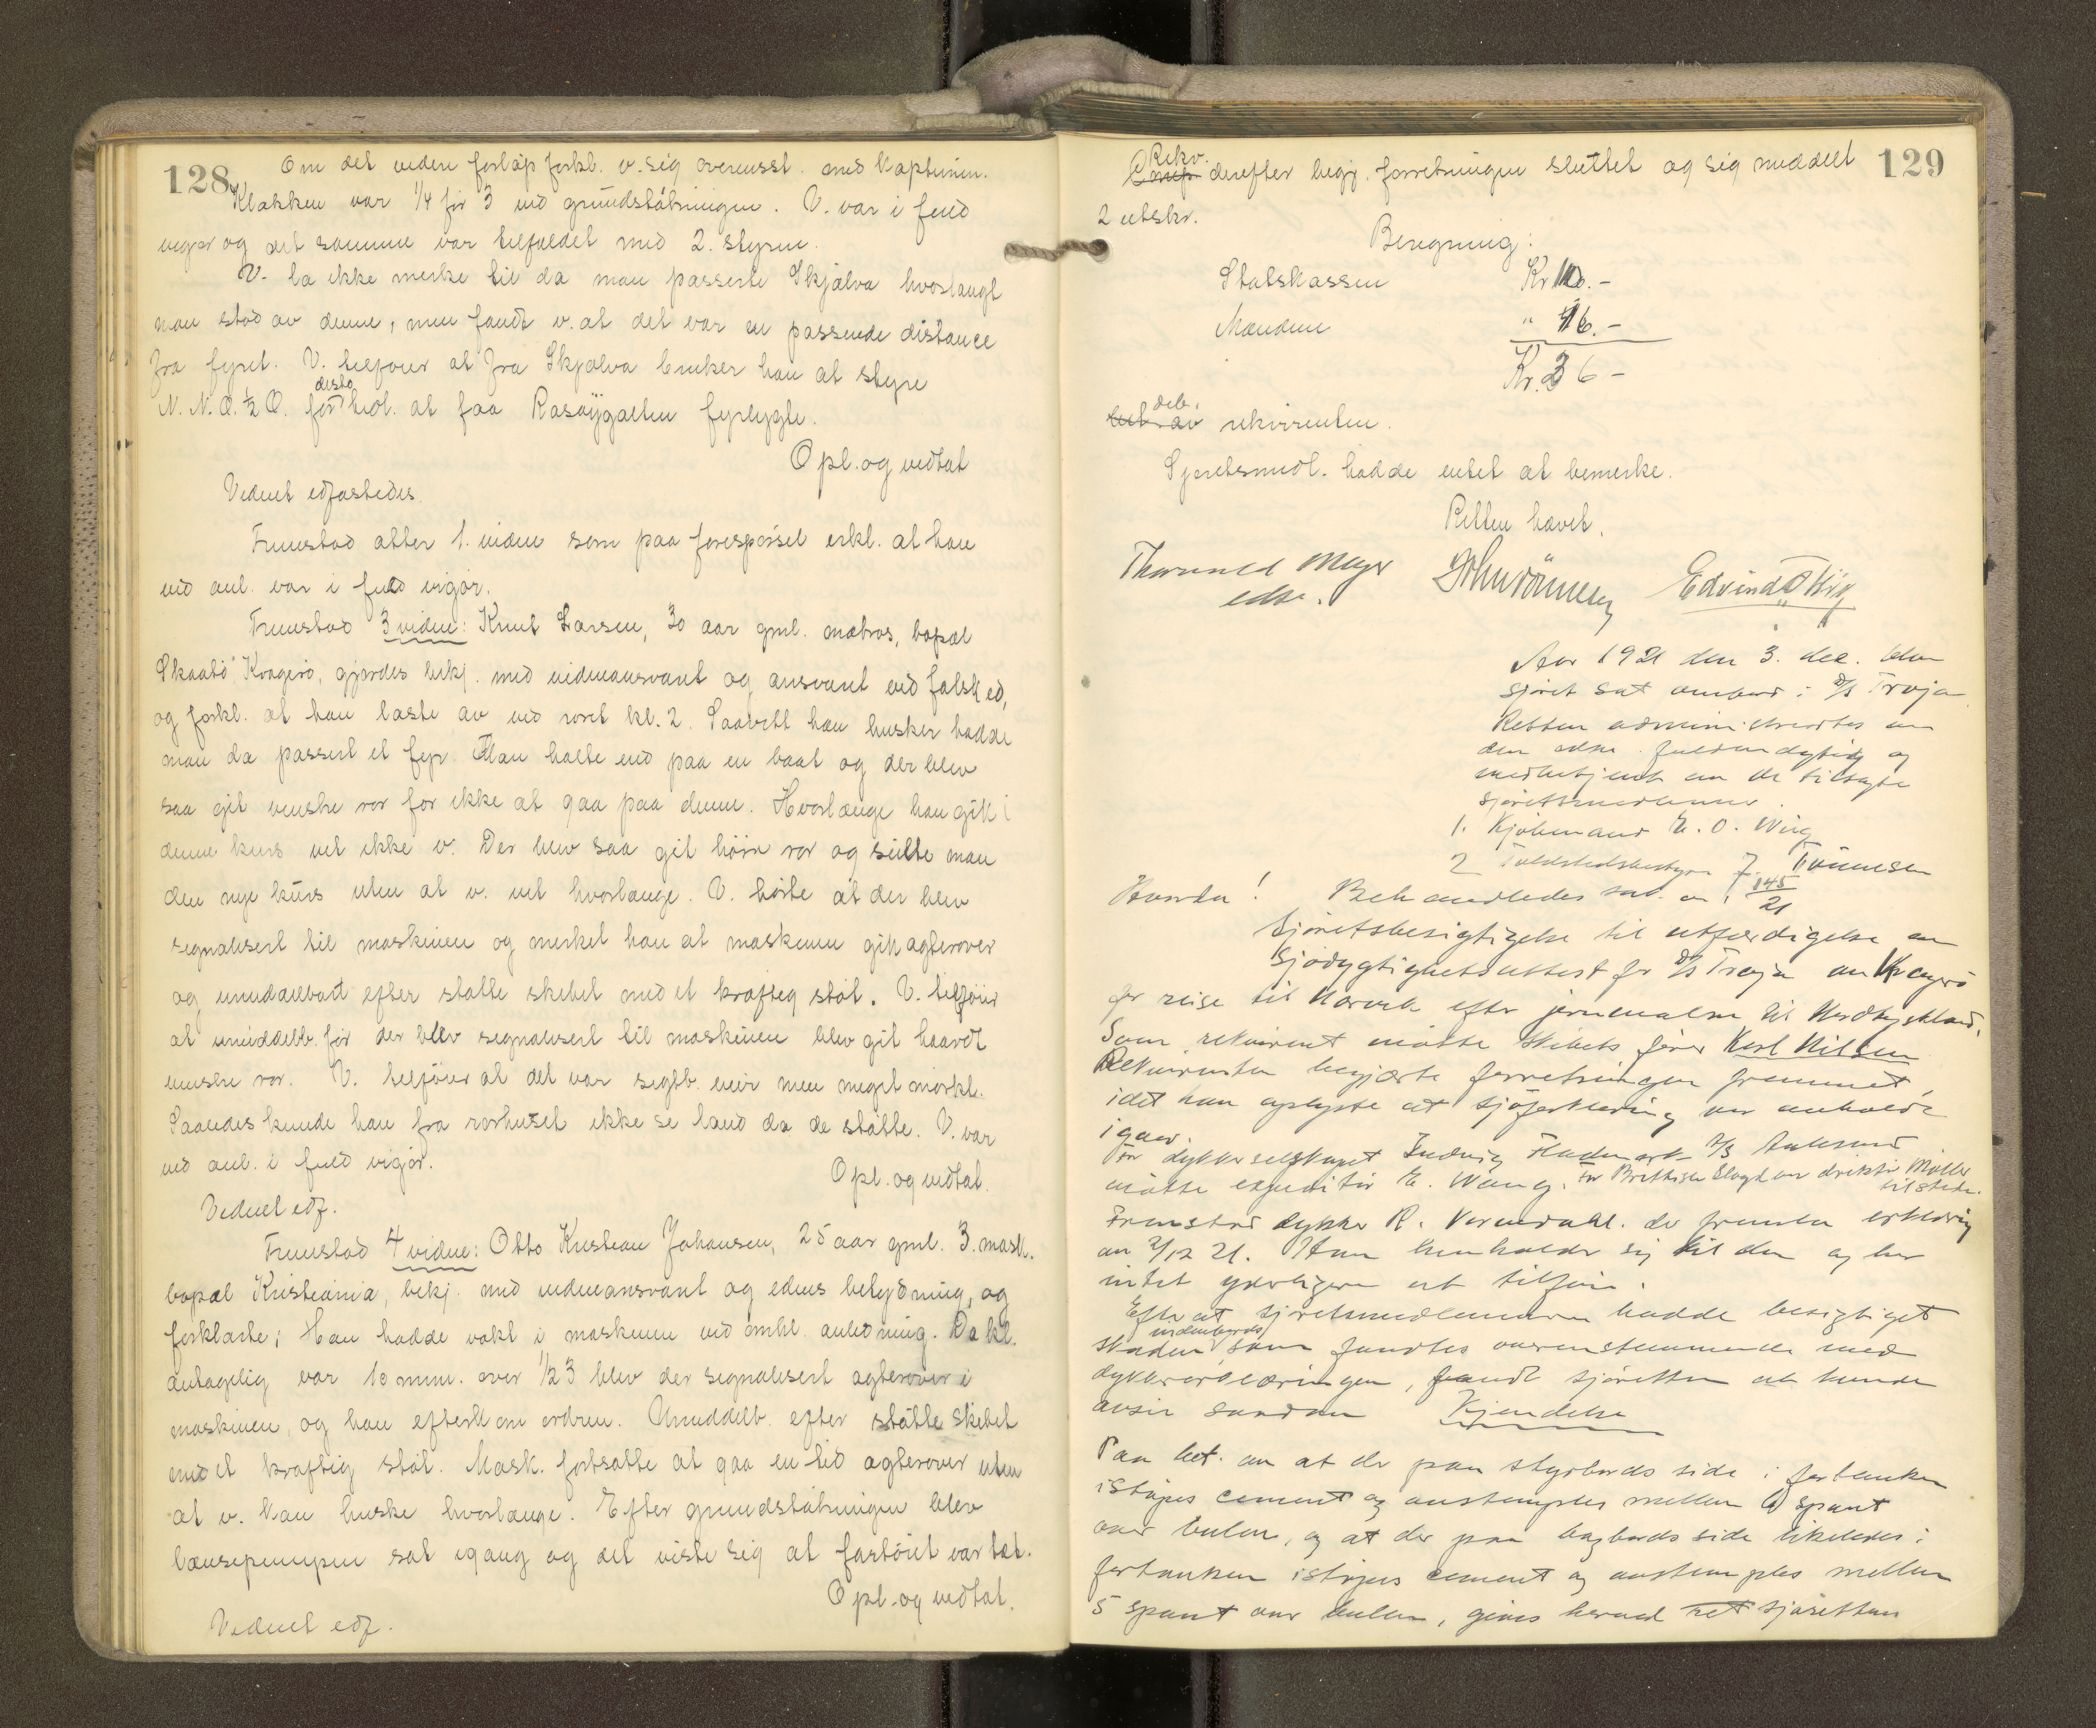 128
Om det videre forløp forkl. v. sig overensst. med kapteinen.
Klokken var 1/4 før 3 ved grundstøtningen. V. var i fuld
vigør og det samme var tilfældet med 2. styrm.
V. la ikke merke til da man passerte Skjælva hvorlangt
man stod av denne, men fandt v. at det var en passende distance
fra fyret. V. tilføier at fra Skjælva bruker han at styre
N.N.O. 1/2 O. for desto at faa Rasøygallen fyrlygte.
Opl. og vedtat
Vidnet edfæstedes.
Fremstod atter 1. vidne som paa forespørsel erkl. at han
ved anl. var i fuld vigør.
Fremstod 3 vidne: Knut Larsen, 30 aar gml. matros, bopæl
Skaatø Kragerø, gjordes bekj. med vidneansvaret og ansvaret ved falsk ed,
og forkl. at han løste av ved roret kl. 2. Saavidt han husker hadde
man da passert et fyr. Man holte ned paa en baat og der blev
saa git venstre ror for ikke at gaa paa denne. Hvorlænge han gik i
denne kurs vet ikke v. Der blev saa git høire ror og seilte man
den nye kurs uten at v. vet hvorlænge. V. hørte at der blev
signalisert til maskinen og merket han at maskinen gik agterover
og umiddelbart efter støtte skibet med et kraftig støt. V. tilføier
at umiddelb. før der blev signalisert til maskinen blev git haardt
venstre ror. V. tilføier at det var sigtb. veir men meget mørkt.
Saaledes kunde han fra rorhuset ikke se land da de støtte. V. var
ved anl. i fuld vigør.
Opl. og vedtat.
Vidnet edf.
Fremstod 4 vidne: Otto Kristian Johansen, 25 aar gml. 3. mask.
bopæl Kristiania, bekj. med vidneansvaret og edens betydning, og
forklarte: Han hadde vakt i maskinen ved omhl. anledning. Da kl.
antagelig var 10 min. over 1/2 3 blev der signalisert agterover i
maskinen og han efterkom ordren. Umiddelb. efter støtte skibet
med et kraftig støt. Mask. fortsatte at gaa en tid agterover uten
at v. kan huske hvorlænge. Efter grundstøtningen blev
lænsepumpen sat igang og det viste sig at fartøiet var tæt.
Opl. og vedtat.
Vidnet edf.
129
Rekv. derefter begj. forretningen sluttet og sig meddelt
2 utskr.
Beregning:
Statskassen Kr. 10.-
Mændene " 16.-
Kr. 36 -
deb. rekvirenten.
Sjøretsmedl. hadde intet at bemerke.
Retten hævet.
Thorvald Meyer
edsv.
Aar 1921 den 3. dec. blev
sjøret sat ombord i D/S Troja
Retten administrertes av
den edsv. fuldmægtig og
medbetjent av de tilsagte
sjøretsmedlemmer.
1. Kjøbmand E. O. Wiig
2 Toldstedsbestyrer J. Tönnesen
Hvorda! Behandledes sak nr. 145/21
Sjøretsbesigtigelse til utfærdigelse av
Sjødygtighetsattest for D/S Troja av Kragerø
for reise til Narvik efter jernmalm til Nordtyskland.
Som rekvirent møtte skibets fører Karl Nilsen
Rekvirenten begjærte forretningen fremmet,
idet han oplyste at sjøforklaring var avholdt
igaar.
For dykkerselskapet Ludvig A/S Aalesund
møtte expeditør E. Wang. For Brittisk Lloyd var direktør Møller tilstede.
Fremstod dykker R. der fremla erklæring
av 2/12 21. Han henholdt sig til den og har
intet yderligere at tilføie.
Efterat sjøretsmedlemmene hadde besigtiget
skaden indenbords, som fandtes overensstemmende med
dykkererklæringen, fandt sjøretten at kunde
avsi saadan Kjendelse
Paa bet. av at der paa styrbords side i fortanken
istøpes cement og avstemples mellem 6 spant
over bulen, og at der paa bagbords side likeledes i
fortanken istøpes cement og avstemples mellem
5 spant over bulen, gives herved sjøretten